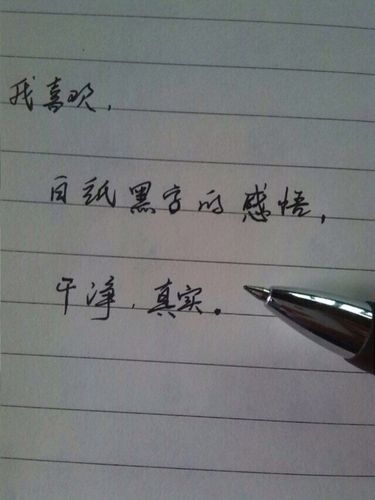 我喜欢，
白纸黑字的感悟，
干净，真实。